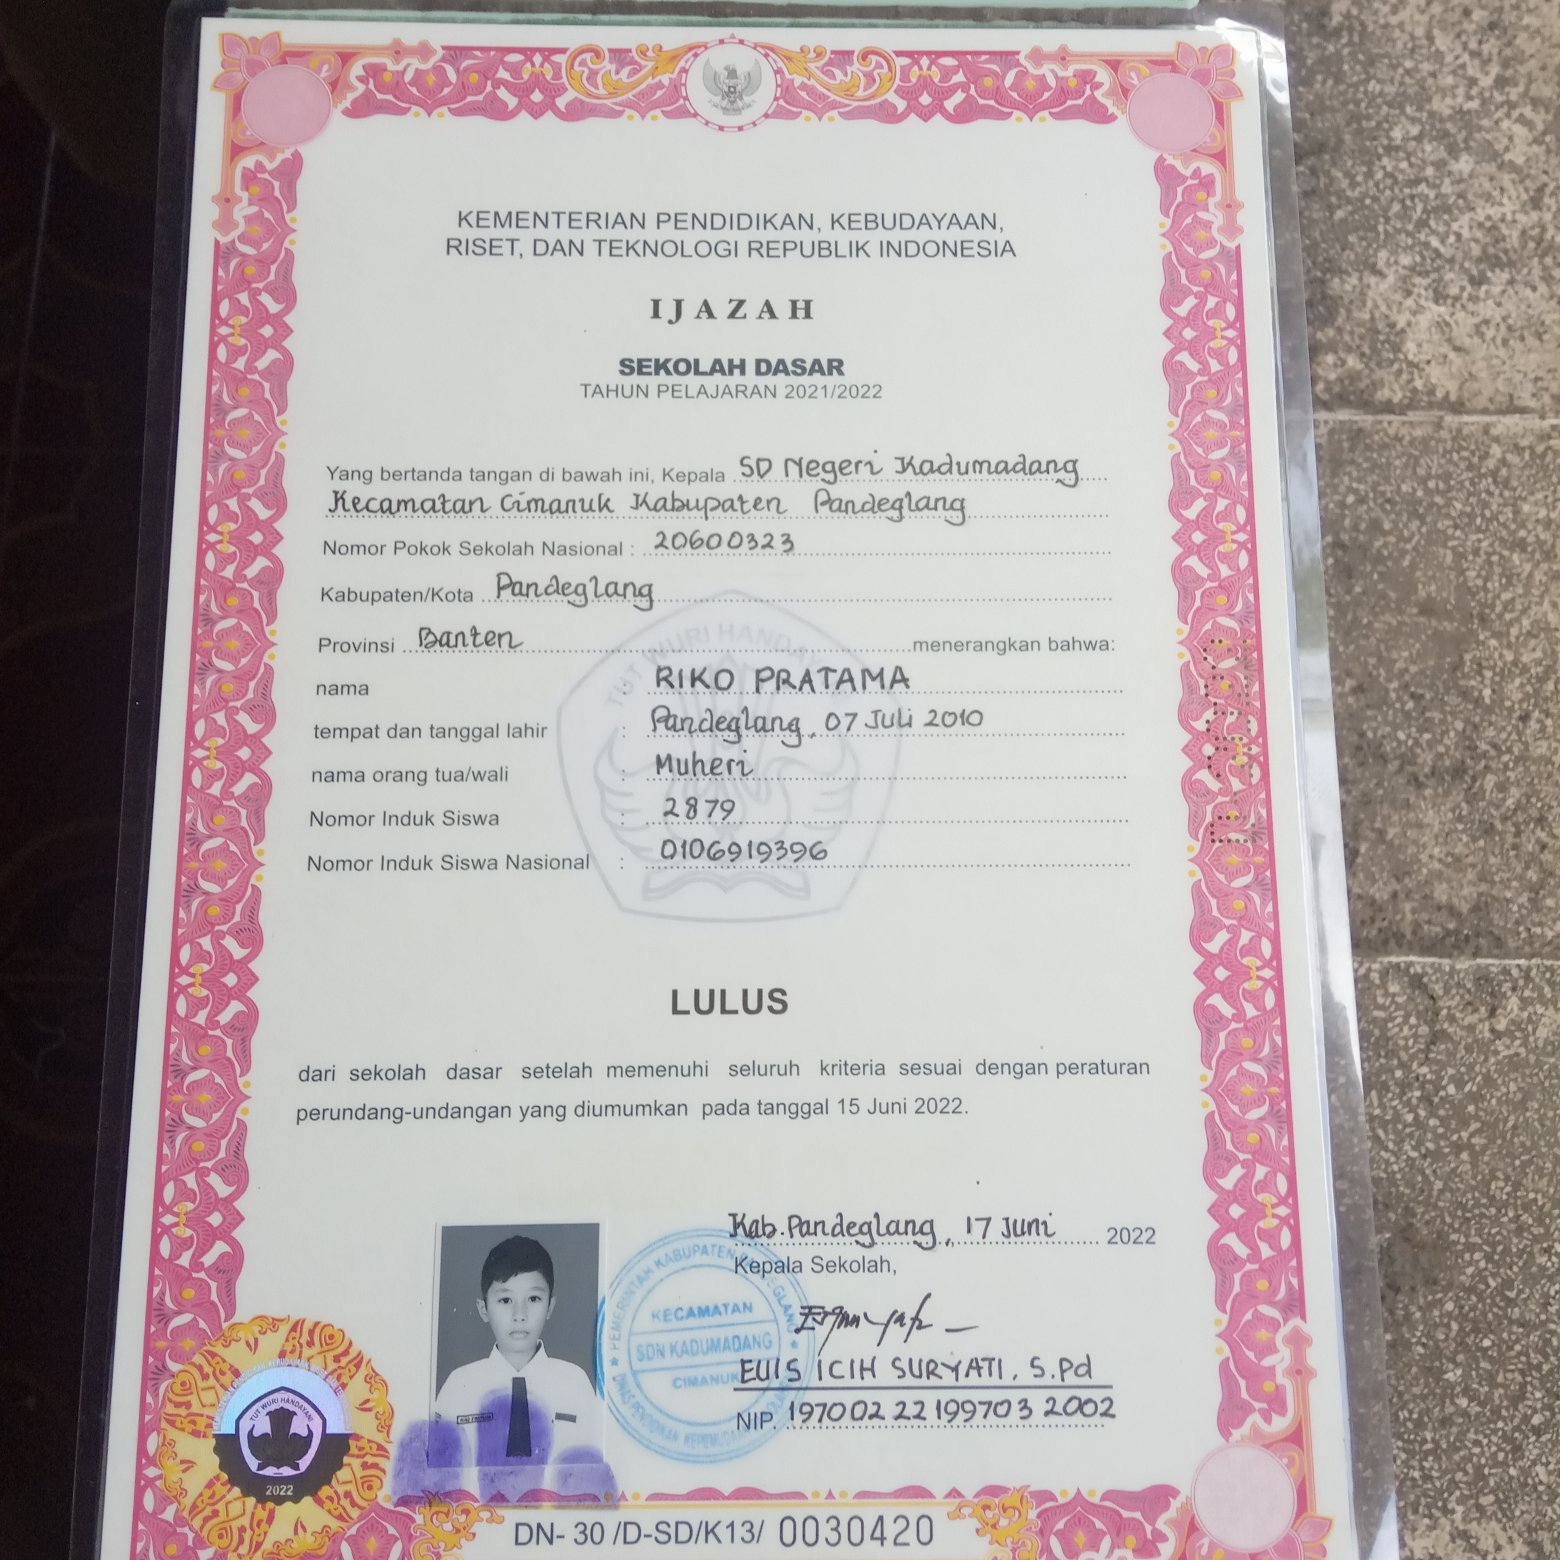 KEMENTERIAN PENDIDIKAN, KEBUDAYAAN,
RISET, DAN TEKNOLOGI REPUBLIK INDONESIA
IJAZAH
SEKOLAH DASAR
TAHUN PELAJARAN 2021/2022
Yang bertanda tangan di bawah ini, Kepala SD Negeri Kadumadang
Kecamatan Cimanuk Kabupaten Pandeglang
Nomor Pokok Sekolah Nasional : 20600323
Kabupaten/Kota Pandeglang
Provinsi Banten menerangkan bahwa:
TUT WURI HANDAYANI
nama : RIKO PRATAMA
tempat dan tanggal lahir : Pandeglang, 07 Juli 2010
nama orang tua/wali : Muheri
Nomor Induk Siswa : 2879
Nomor Induk Siswa Nasional : 0106919396
LULUS
dari sekolah dasar setelah memenuhi seluruh kriteria sesuai dengan peraturan
perundang-undangan yang diumumkan pada tanggal 15 Juni 2022.
Kab. Pandeglang, 17 Juni 2022
Kepala Sekolah,
PEMERINTAH KABUPATEN PANDEGLANG
KECAMATAN
SDN KADUMADANG
CIMANUK
DINAS PENDIDIKAN KEPEMUDAAN
EUIS ICIH SURYATI, S.Pd
NIP. 19700222 199703 2002
TUT WURI HANDAYANI
2022
DN- 30 /D-SD/K13/ 0030420